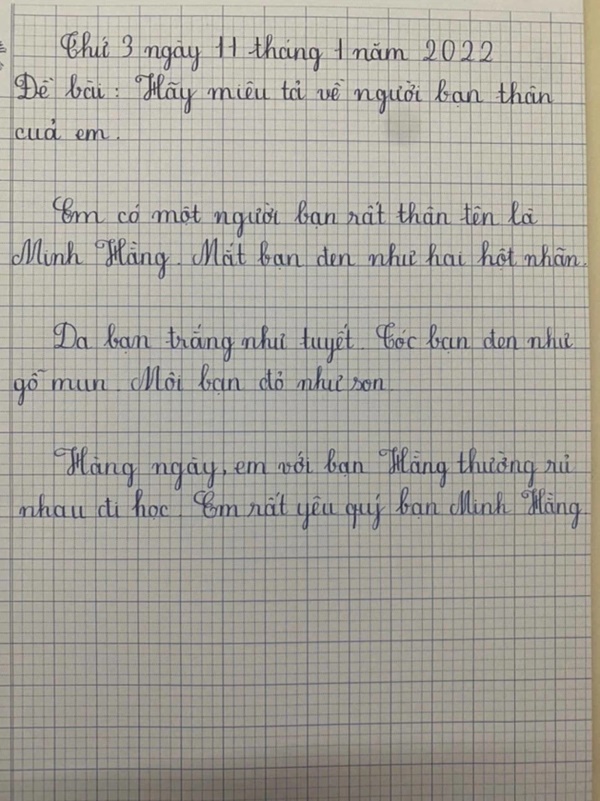 Thứ 3 ngày 11 tháng 1 năm 2022
Đề bài: Hãy miêu tả về người bạn thân
cuả em.
Em có một người bạn rất thân tên là
Minh Hằng. Mắt bạn đen như hai hột nhãn.
Da bạn trắng như tuyết. Tóc bạn đen như
gỗ mun. Môi bạn đỏ như son.
Hàng ngày, em với bạn Hằng thường rủ
nhau đi học. Em rất yêu quý bạn Minh Hằng